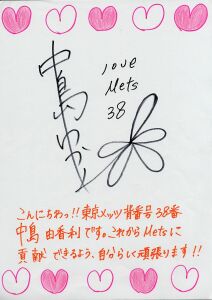 love
Mets
38
中島
こんにちわっ!!東京メッツ背番号38番
中島 由香利です。これからMetsに
貢献できるよう、自分らしく頑張ります!!